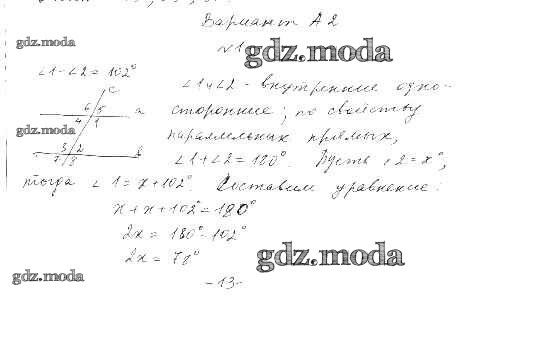 Вариант А2
№1
gdz.moda
gdz.moda
∠1-∠2=102°
c
∠1 и ∠2 - внутренние одно-
6 5
a
сторонние; по свойству
4 1
gdz.moda
параллельных прямых,
3 2
в
∠1+∠2=180°. Пусть ∠2=x°,
7 8
тогда ∠1=x+102°. Составим уравнение:
x+x+102°=180°
2x=180°-102°
gdz.moda
2x=78°
gdz.moda
-13-